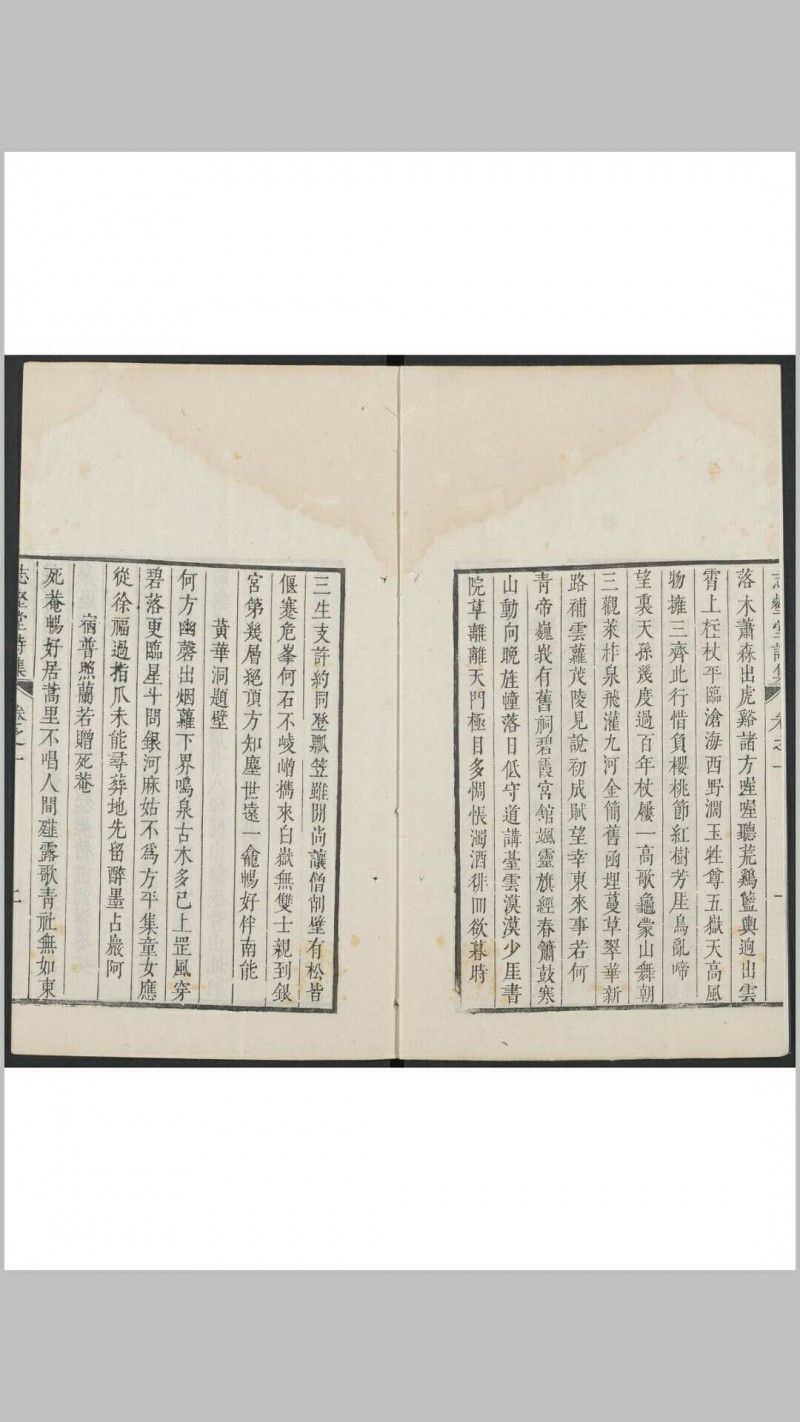 志壑堂詩集 卷之一 一
落木蕭森出虎谿諸方喔喔聽荒鷄籃輿迥出雲
霄上拄杖平臨滄海西野澗玉牲尊五嶽天高風
物擁三齊此行惜負櫻桃節紅樹芳厓鳥亂啼
望裏天孫幾度過百年杖屨一高歌龜蒙山舞朝
三觀萊柞泉飛灌九河金簡舊函埋蔓草翠華新
路補雲蘿茂陵見說初成賦望幸東來事若何
靑帝巍峩有舊祠碧霞宮館颯靈旗經春簫鼓寒
山動向晩旌幢落日低守道講臺雲漠漠少厓書
院草離離天門極目多惆悵濁酒徘徊欲暮時
三生支許約同登瓢笠雖閒尚讓僧削壁有松皆
偃蹇危峯何石不崚嶒攜來白嶽無雙士親到銀
宮第幾層絕頂方知塵世遠一龕暢好伴南能
黃華洞題壁
何方幽磬出烟蘿下界鳴泉古木多已上罡風穿
碧落更臨星斗問銀河麻姑不爲方平集童女應
從徐福過指爪未能尋葬地先留醉墨占巖阿
宿普照蘭若贈死菴
死菴暢好居蒿里不唱人間薤露歌靑社無如東
志壑堂詩集 卷之一 二